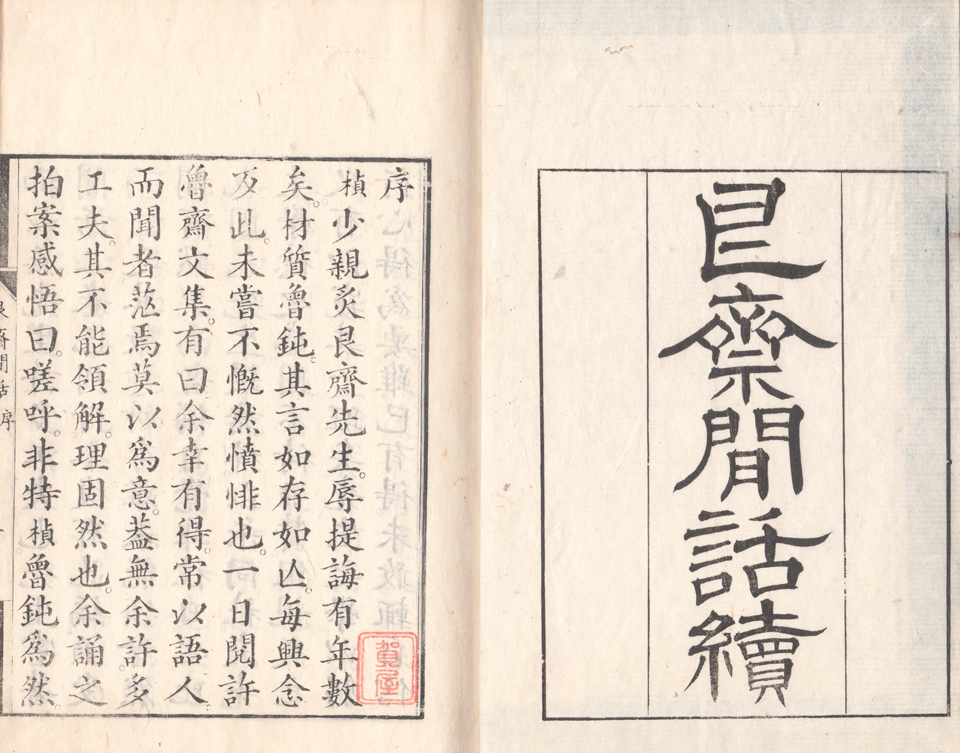 艮齋閒話續
序
楨少親炙艮齋先生。辱提誨有年數
矣。材質魯鈍。其言如存如亾。每興念
及此。未嘗不慨然憤悱也。一日閱許
魯齋文集。有曰余幸有得。常以語人
而聞者茫焉莫以爲意。葢無余許多
工夫。其不能領解。理固然也。余誦之
拍案感悟曰。嗟呼。非特楨魯鈍爲然
艮齋閒話 序